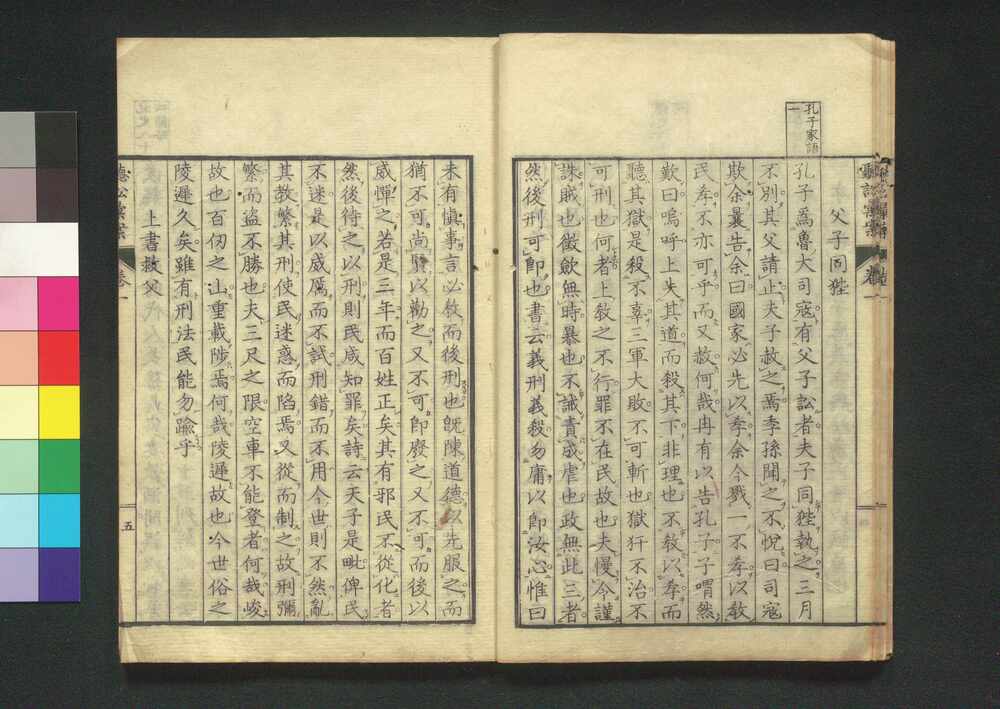 孔子家語
一
父子同狴
孔子爲魯大司寇有父子訟者夫子同狴執之三月
不別其父請止夫子赦之焉季孫聞之不悅曰司寇
欺余曩告余曰國家必先以孝余今戮一不孝以敎
民孝不亦可乎而又赦何哉冉有以告孔子子喟然
歎曰嗚呼上失其道而殺其下非理也不敎以孝而
聽其獄是殺不辜三軍大敗不可斬也獄犴不治不
可刑也何者上敎之不行罪不在民故也夫慢令謹
誅賊也徵歛無時暴也不誡責成虐也政無此三者
然後刑可卽也書云義刑義殺勿庸以卽汝心惟曰
未有愼事言必敎而後刑也旣陳道德以先服之而
猶不可尙賢以勸之又不可卽廢之又不可而後以
威憚之若是三年而百姓正矣其有邪民不從化者
然後待之以刑則民咸知罪矣詩云天子是毗俾民
不迷是以威厲而不試刑錯而不用今世則不然亂
其敎繁其刑使民迷惑而陷焉又從而制之故刑彌
繁而盜不勝也夫三尺之限空車不能登者何哉峻
故也百仞之山重載陟焉何哉陵遲故也今世俗之
陵遲久矣雖有刑法民能勿踰乎
上書救父
聽訟彙案
卷一
五